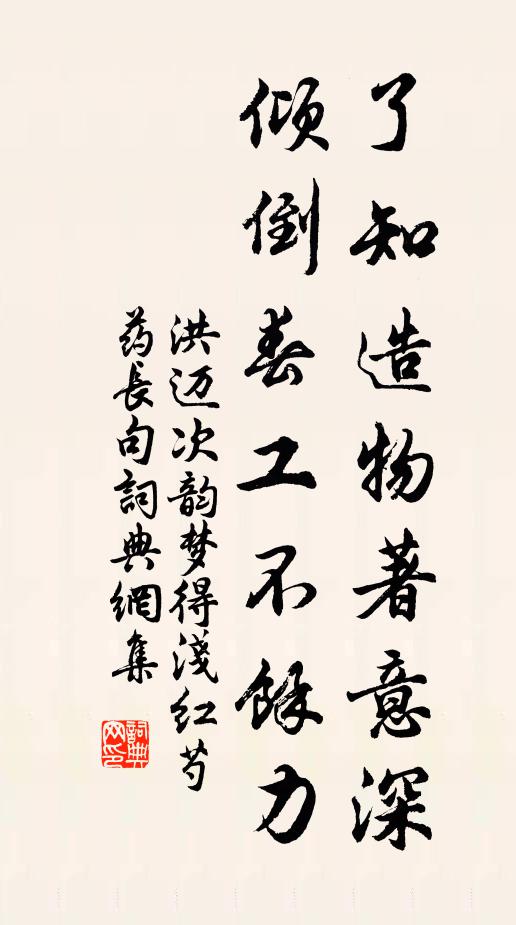 了知造物著意深
傾倒春工不餘力
洪迈次韵梦得淺红芍
药長句詞典網集
詞典
网印